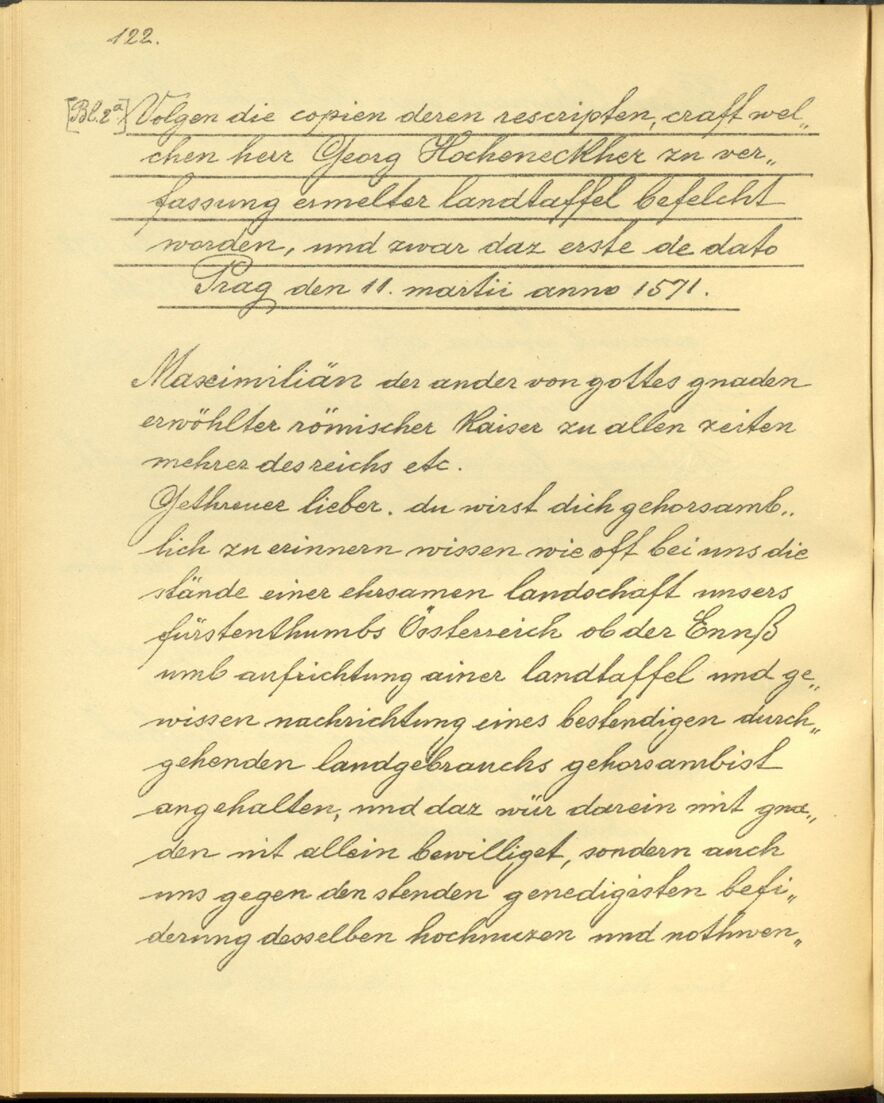 122.
[Bl.2ª] Volgen die copien deren rescripten, craft wel„
chen herr Georg Hocheneckher zu ver„
fassung ermelter landtaffel befelcht
worden, und zwar daz erste de dato
Prag den 11. martii anno 1571.
Maximiliän der ander von gottes gnaden
erwöhlter römischer Kaiser zu allen zeiten
mehrer des reichs etc.
Gethreuer lieber. du wirst dich gehorsamb„
lich zu erinnern wissen wie oft bei uns die
stände einer ehrsamen landschaft unsers
fürstenthumbs Össterreich ob der Ennß
umb aufrichtung ainer landtaffel und ge„
wissen nachrichtung eines bestendigen durch„
gehenden landgebrauchs gehorsambist
angehalten, und daz wür darein mit gna„
den nit allein bewilliget, sondern auch
uns gegen den stenden genedigisten befi„
derung desselben hochnuzen und nothwen„